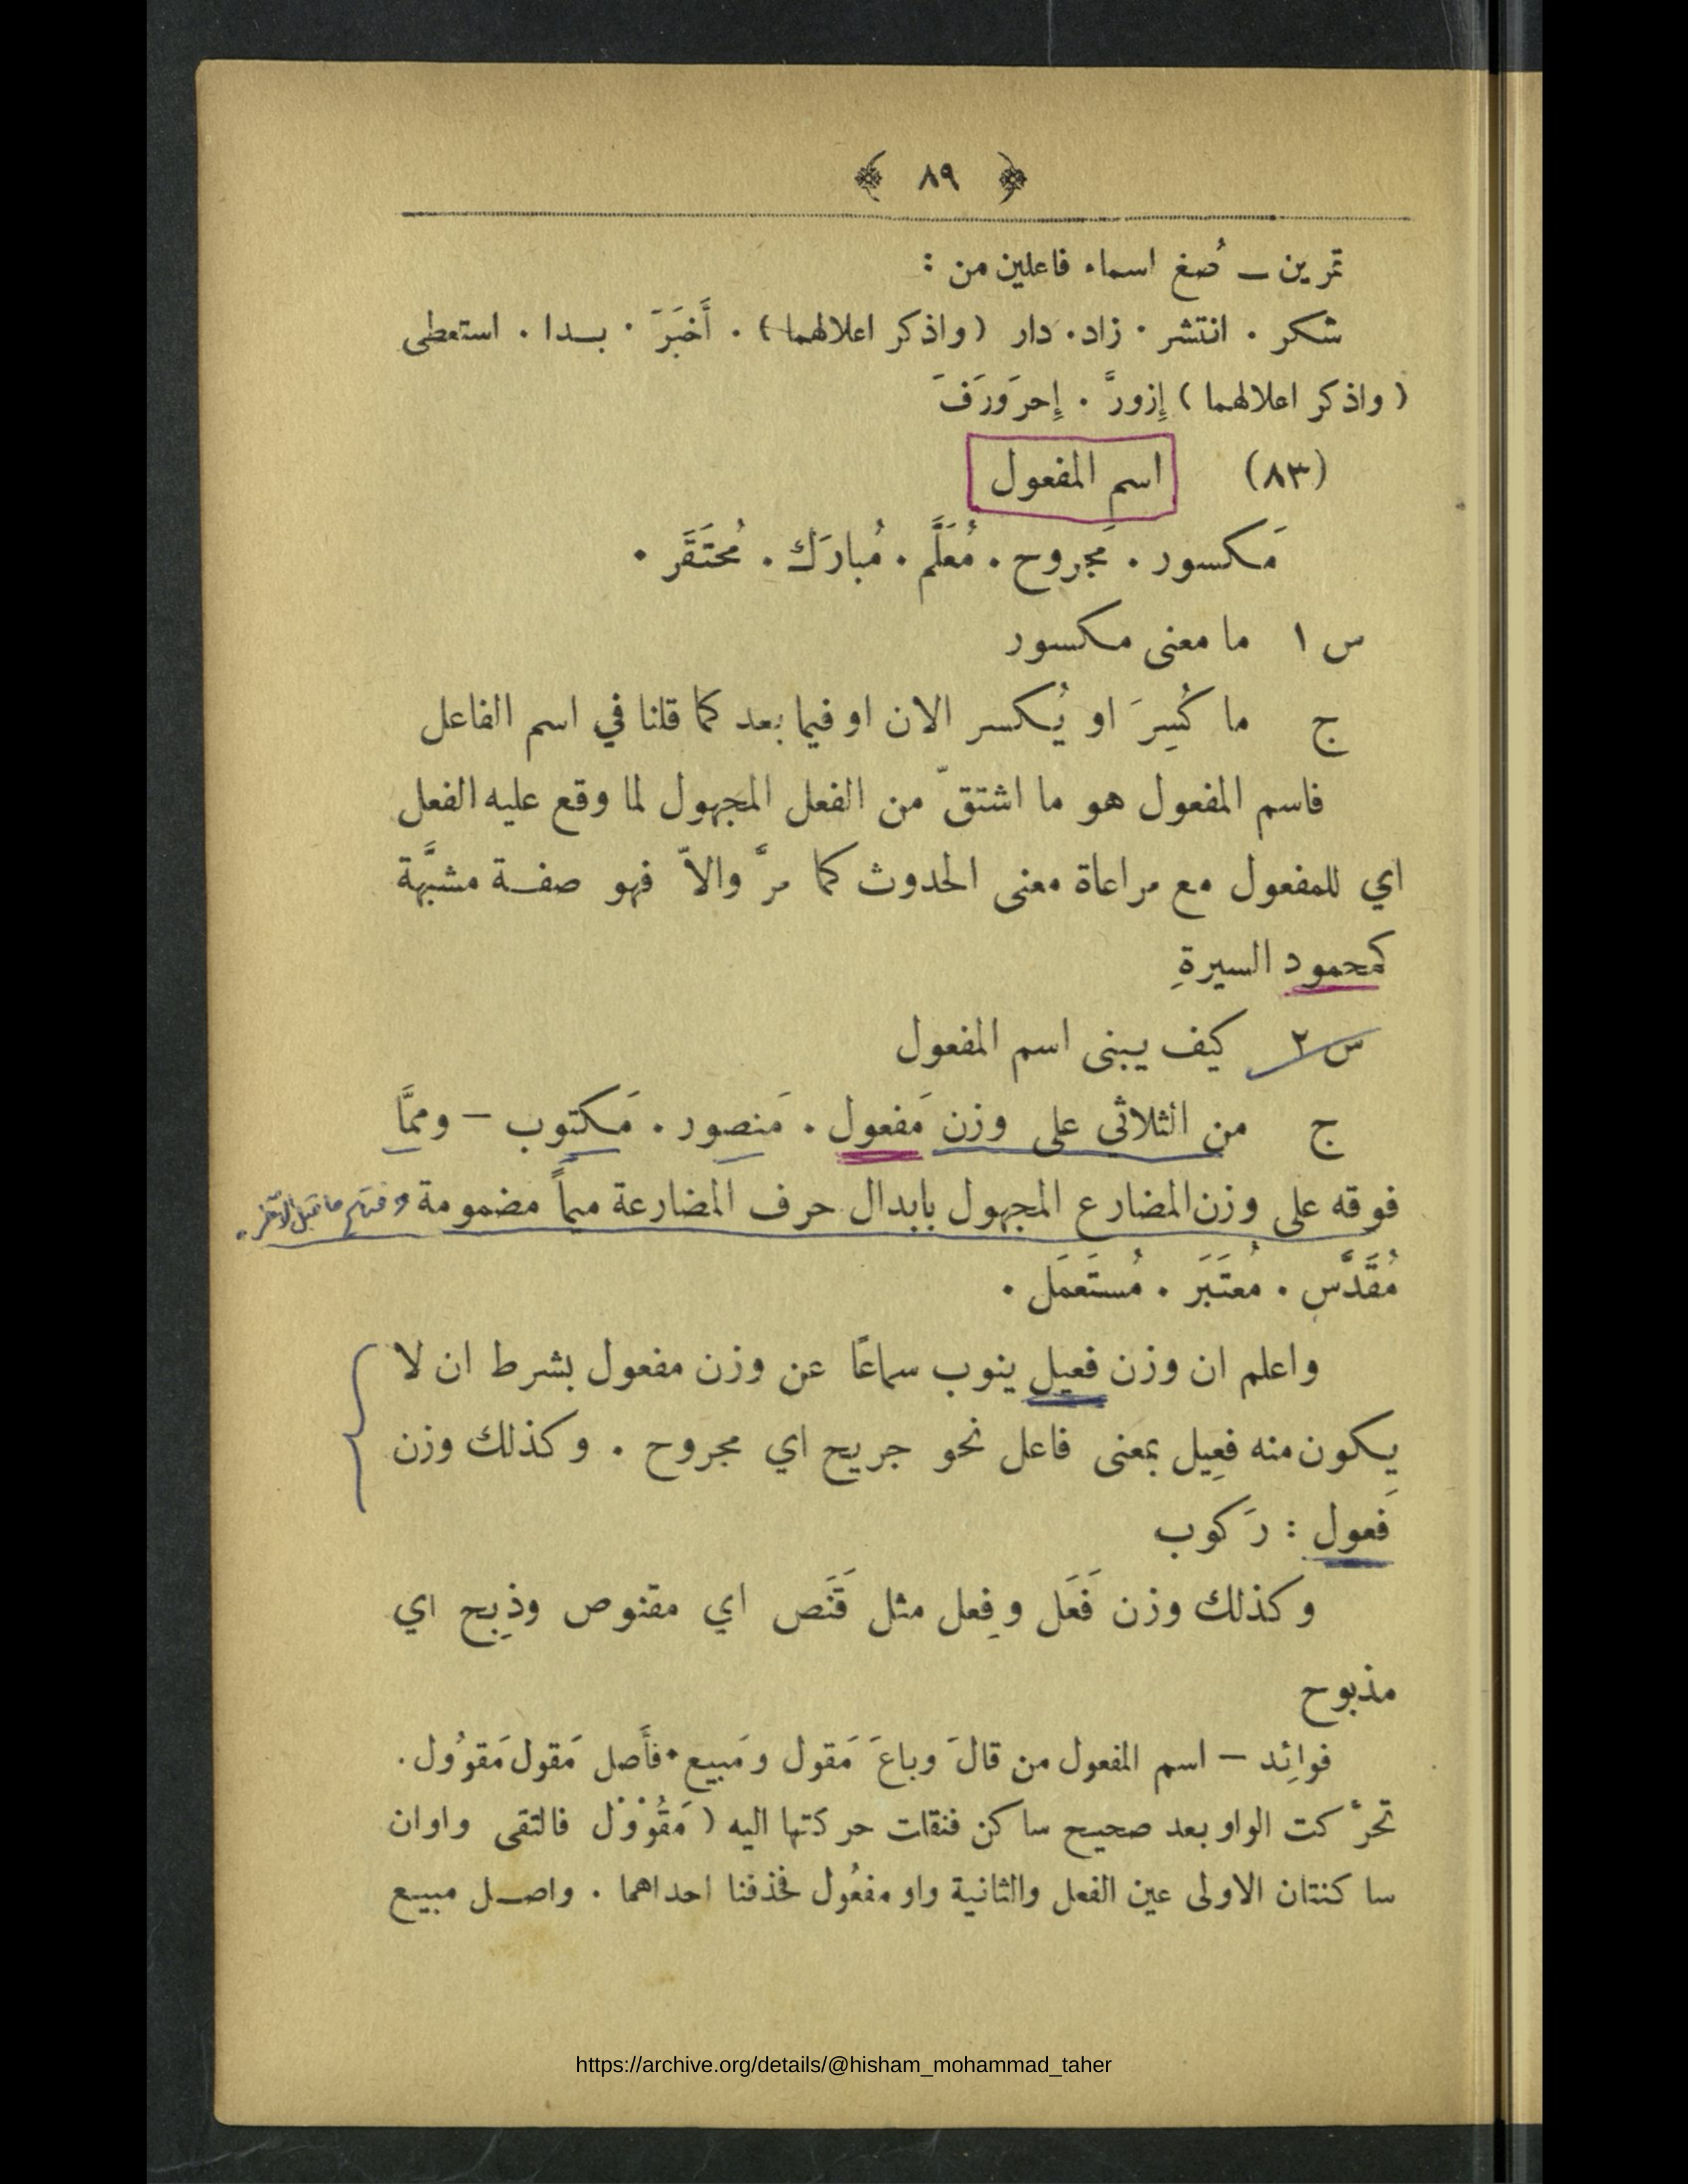 ٨٩
تمرين — صُغ اسماء فاعلين من :
شكر . انتشر . زاد . دار ( واذكر اعلالهما ) . أَخبَرَ . بدا . استعطى
( واذكر اعلالهما ) إِزورَّ . إِحرَورَفَ
(٨٣) اسم المفعول
مَكسور . مَجروح . مُعَلَّم . مُبارَك . مُحتَقَر .
س ١ ما معنى مكسور
ج ما كُسِرَ او يُكسر الان او فيما بعد كما قلنا في اسم الفاعل
فاسم المفعول هو ما اشتقّ من الفعل المجهول لما وقع عليه الفعل
اي للمفعول مع مراعاة معنى الحدوث كما مرَّ والاّ فهو صفة مشبَّهة
كمحمود السيرةِ
س ٢ كيف يبنى اسم المفعول
ج من الثلاثي على وزن مَفعول . مَنصور . مَكتوب — وممَّا
فوقه على وزن المضارع المجهول بابدال حرف المضارعة ميماً مضمومة وفتح ما قبل الآخر .
مُقَدَّس . مُعتَبَر . مُستَعمَل .
واعلم ان وزن فعيل ينوب سماعًا عن وزن مفعول بشرط ان لا
يكون منه فعِيل بمعنى فاعل نحو جريح اي مجروح . وكذلك وزن
فَعول : رَكوب
وكذلك وزن فَعَل وفِعل مثل قَنَص اي مقنوص وذِبح اي
مذبوح
فوائِد — اسم المفعول من قالَ وباعَ مَقول ومَبيع . فأَصل مَقول مَقوُول .
تحرَّكت الواو بعد صحيح ساكن فنقلت حركتها اليه ( مَقُوْوْل فالتقى واوان
ساكنتان الاولى عين الفعل والثانية واو مفعُول فحذفنا احداهما . واصل مبيع
https://archive.org/details/@hisham_mohammad_taher